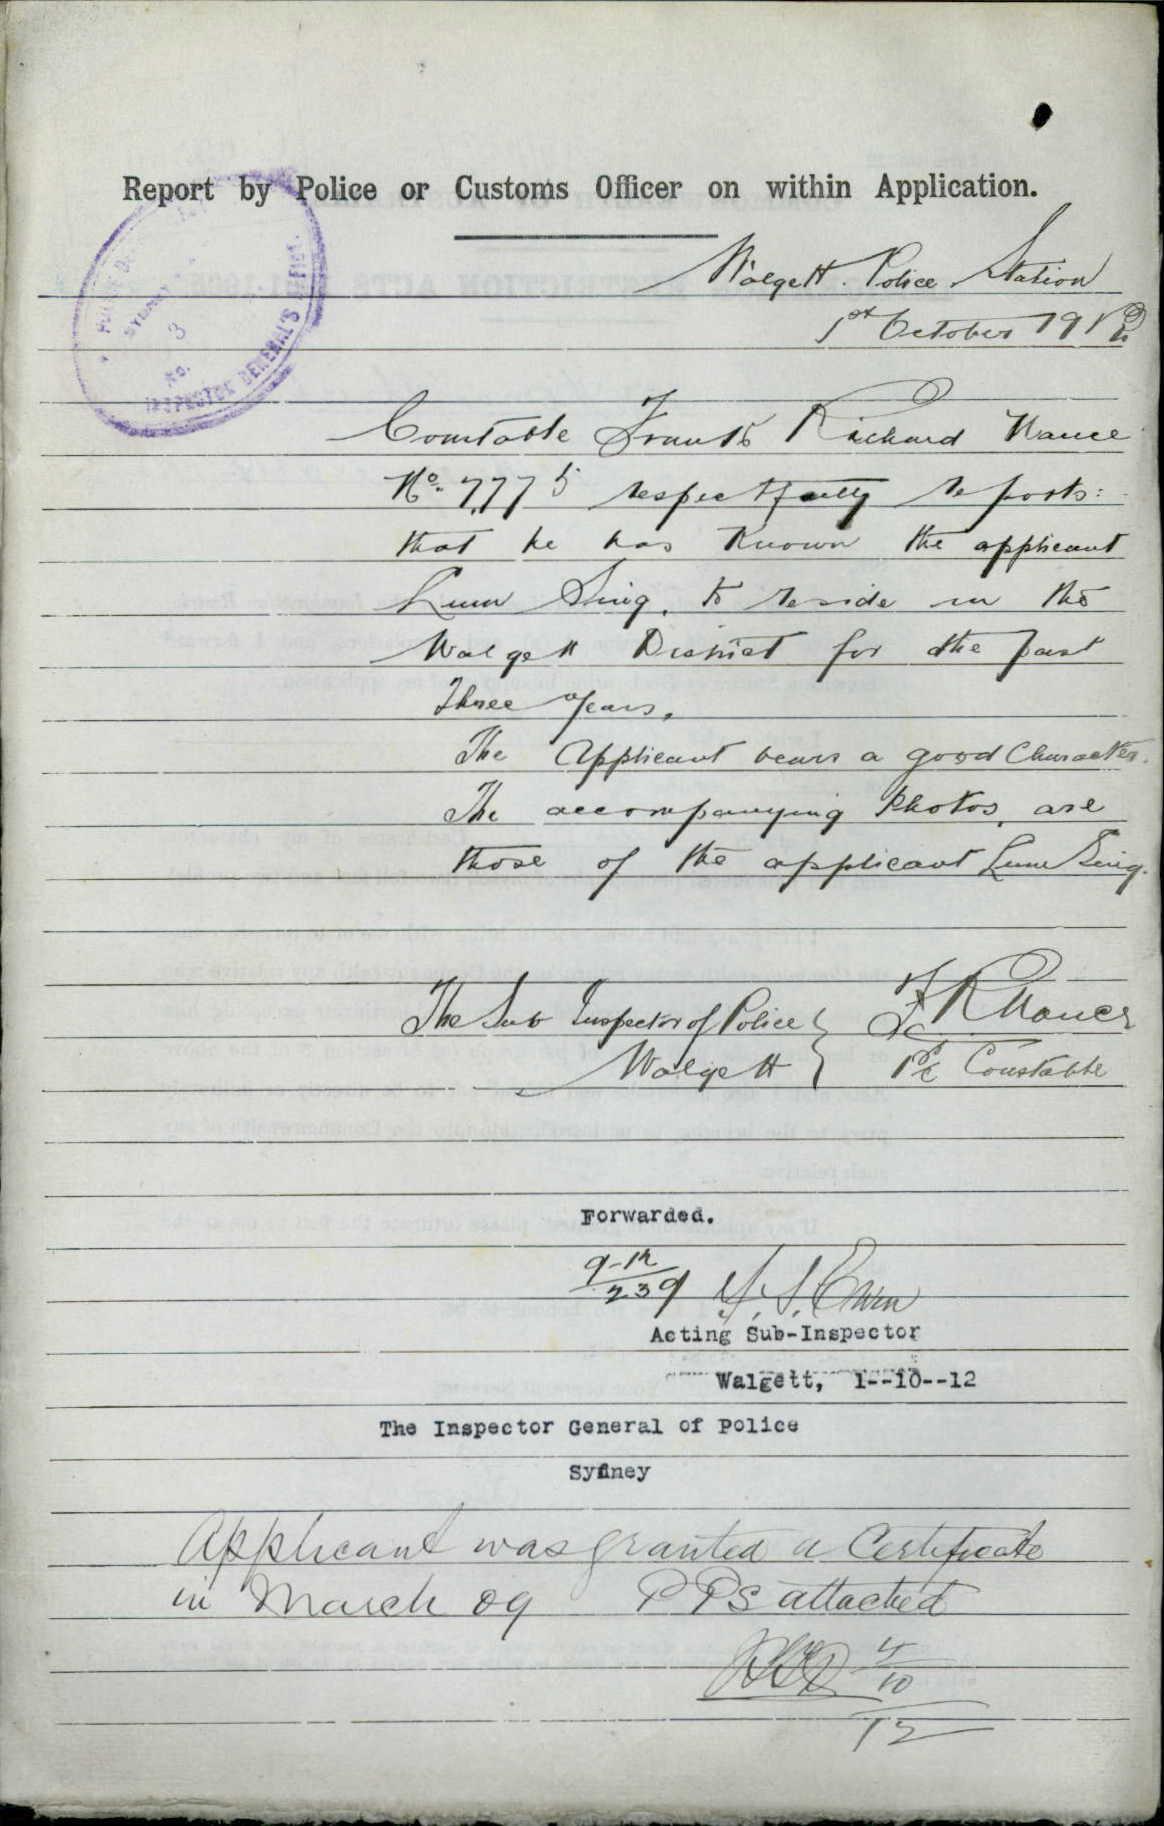 Report by Police or Customs Officer on within Application.
POLICE
SYDNEY
3
No.
INSPECTOR GENERAL'S OFFICE.
Walgett Police Station
1st October 1912
Constable Frank Richard Nance
No. 7775 respectfully reports:
that he has Known the applicant
Lum Sing, to reside in the
Walgett District for the past
Three years.
The Applicant bears a good Character.
The accompanying Photos, are
those of the applicant Lum Sing.
The Sub Inspector of Police } F R Nance
Walgett } Constable
Forwarded.
9-12
239
Acting Sub-Inspector
Walgett, 1--10--12
The Inspector General of Police
Sydney
Applicant was granted a Certificate
in March 09 PPs attached
4
10
12